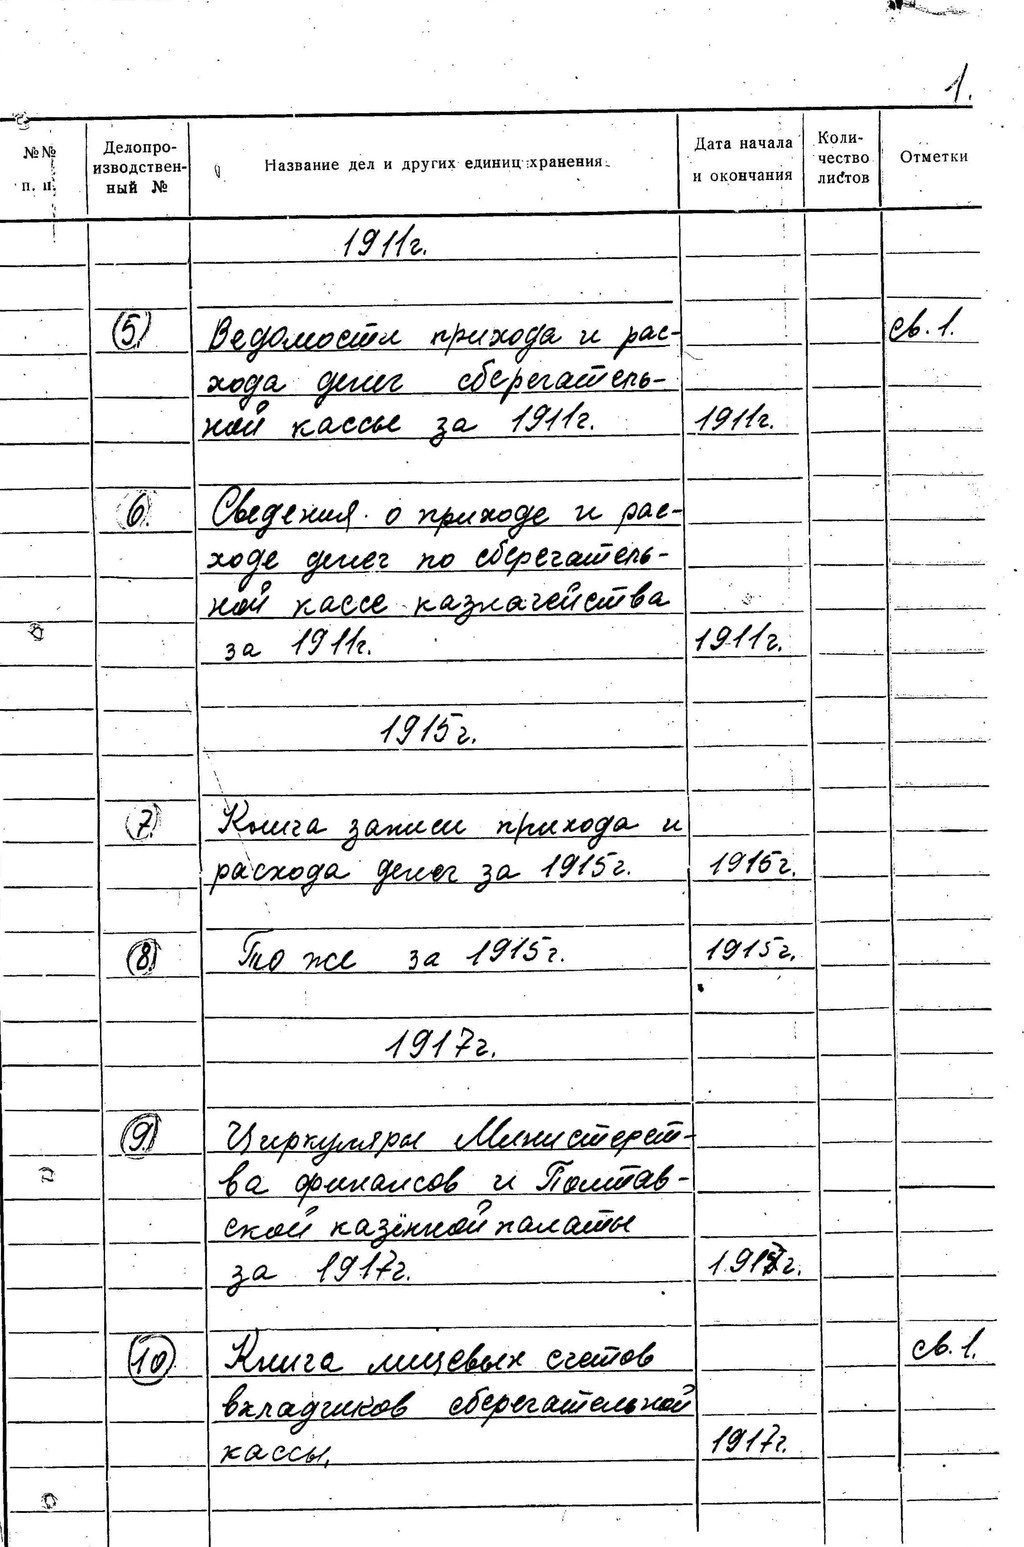 1.
№№ п. п.
Делопро-
изводствен-
ный №
Название дел и других единиц хранения
Дата начала
и окончания
Коли-
чество
листов
Отметки
1911г.
5. Ведомости прихода и рас- св. 1.
хода денег сберегатель-
ной кассы за 1911г. 1911г.
6. Сведения о приходе и рас-
ходе денег по сберегатель-
ной кассе казначейства
за 1911г. 1911г.
1915г.
7. Книга записи прихода и
расхода денег за 1915г. 1915г.
8. То же за 1915г. 1915г.
1917г.
9. Циркуляры Министерст-
ва финансов и Полтав-
ской казённой палаты
за 1917г. 1917г.
10 Книга лицевых счетов св. 1.
вкладчиков сберегательной
кассы. 1917г.